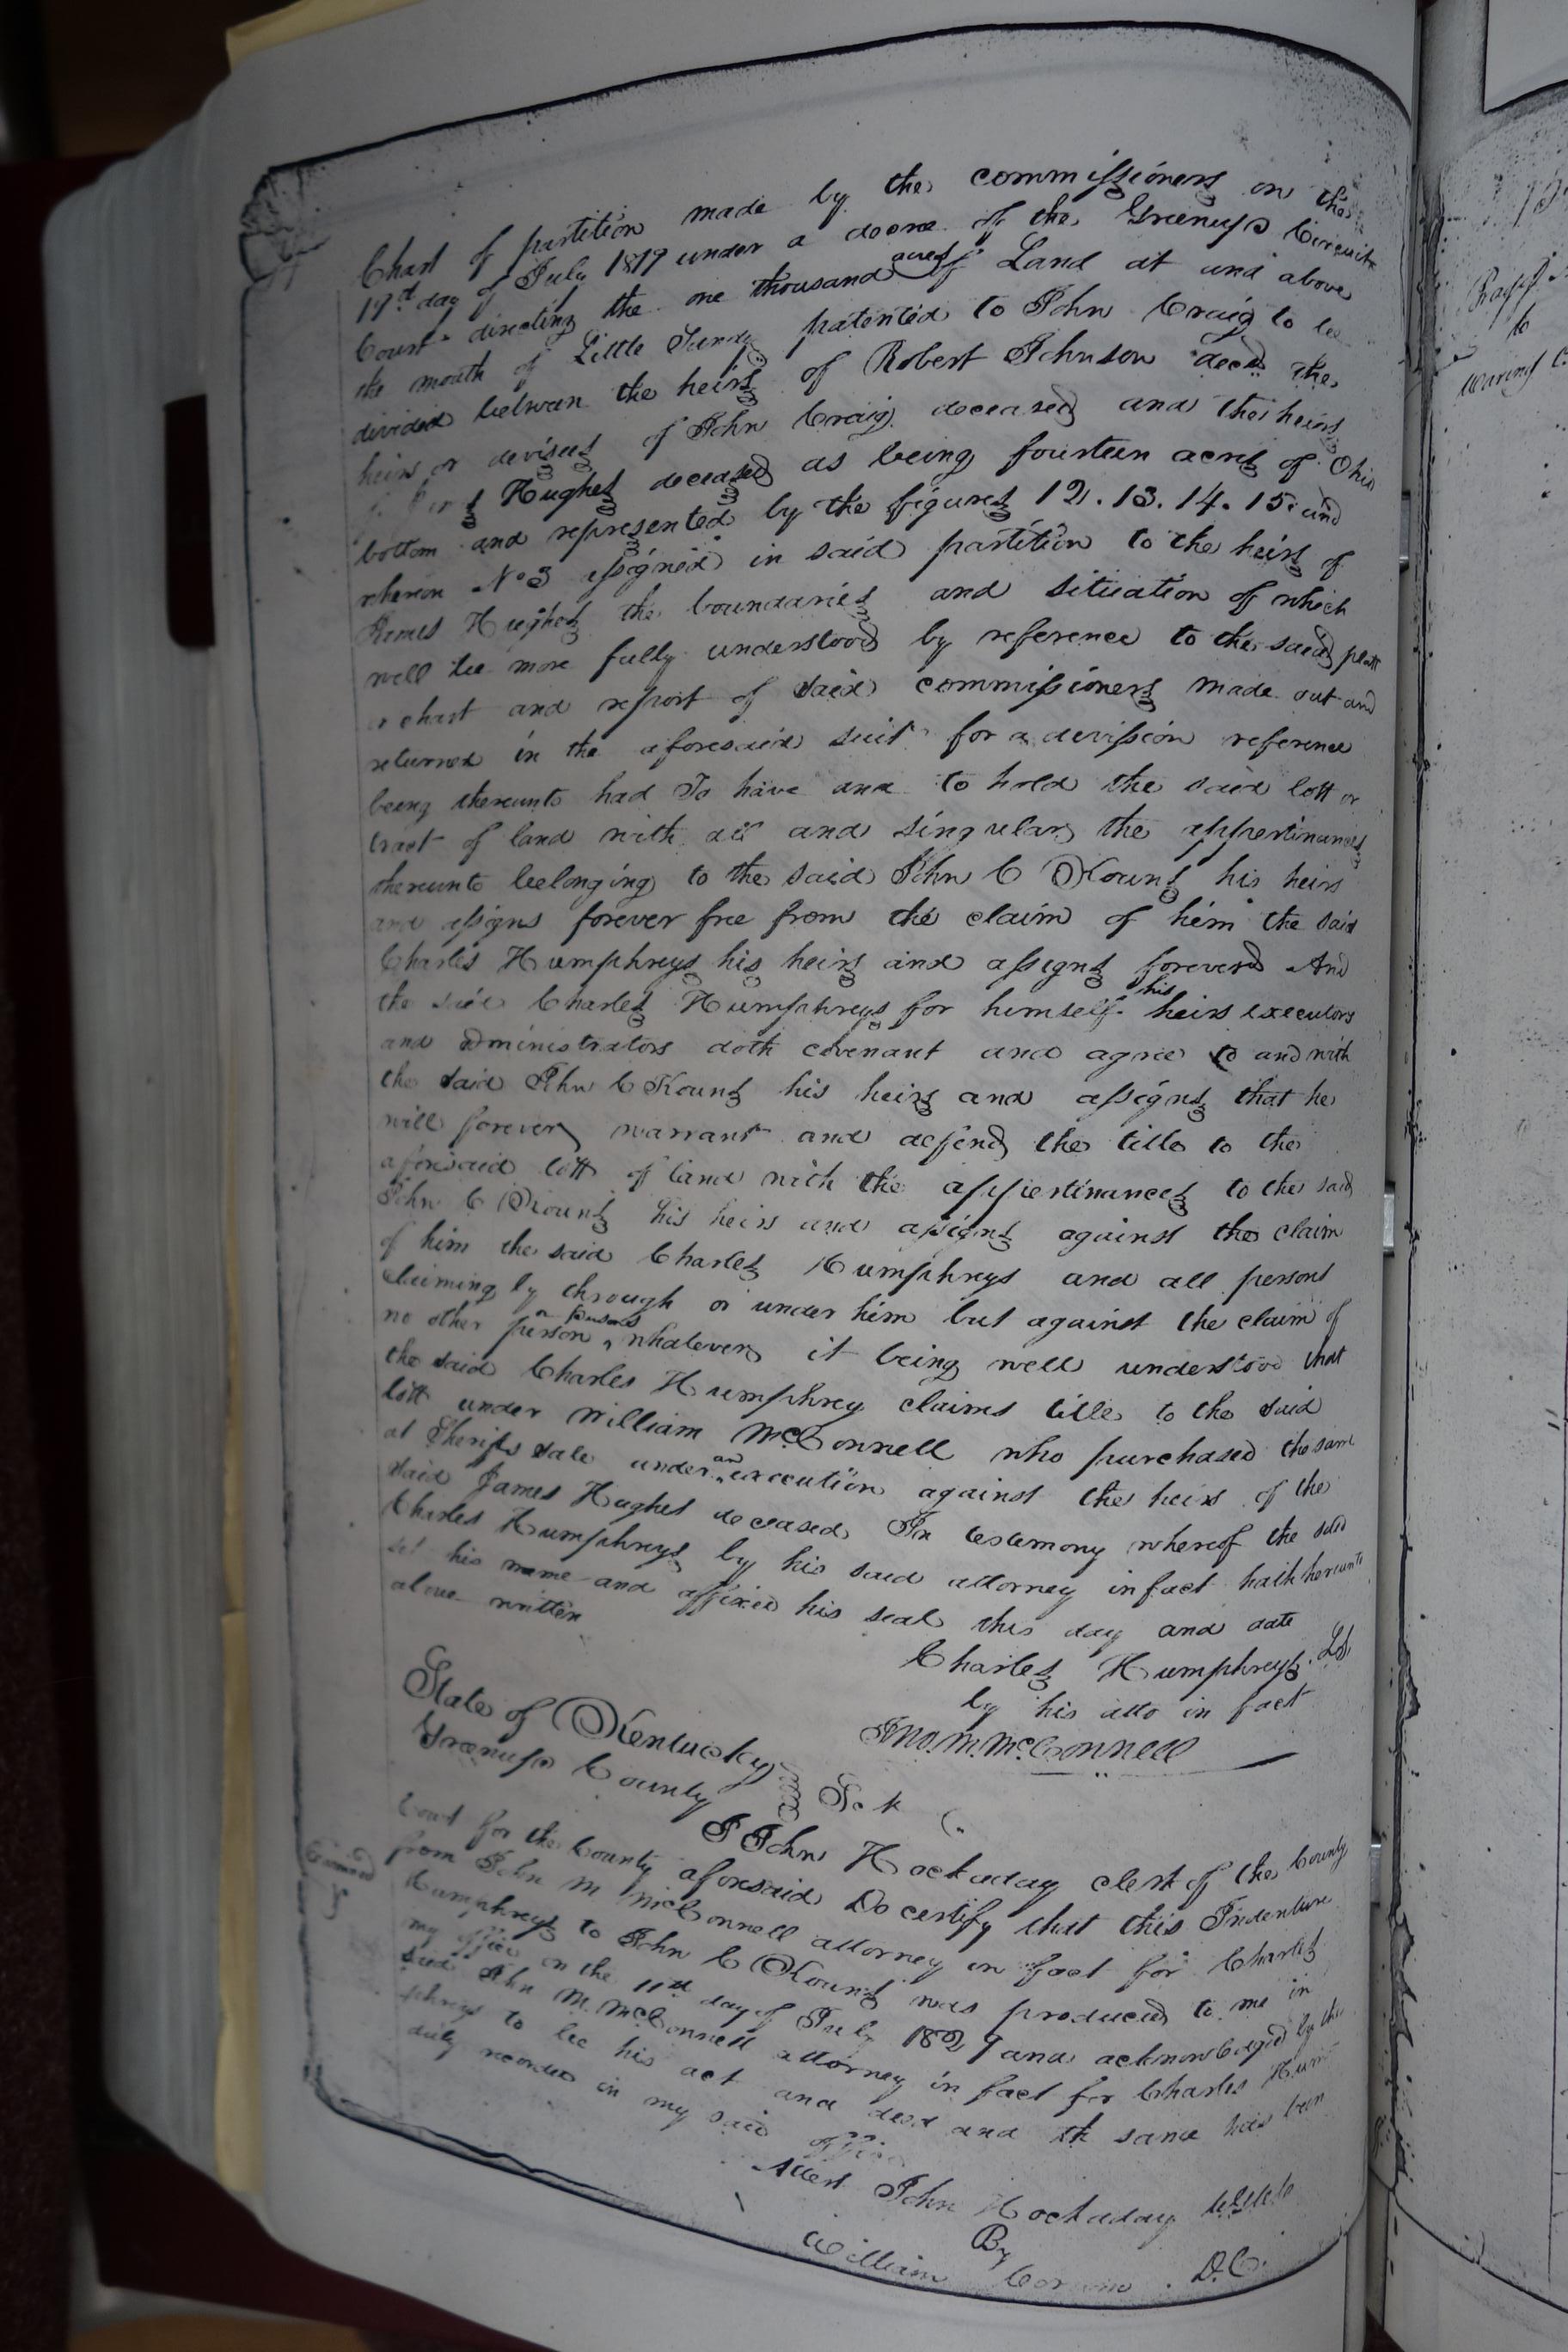 Chart of partition made by the commissioners on the
19th day of July 1819 under a decree of the Greenup Circuit
Court directing the one thousand acres of Land at and above
the mouth of Little Sandy patented to John Craig to be
divided between the heirs of Robert Johnson decd the
heirs or devisees of John Craig deceased and the heirs
of James Hughes deceased as being fourteen acres of Ohio
bottom and represented by the figures 12. 13. 14. 15. and
whereon No 3 assigned in said partition to the heirs of
James Hughes the boundaries and situation of which
will be more fully understood by reference to the said platt
or chart and report of said commissioners made out and
returned in the aforesaid suit for a devission reference
being thereunto had To have and to hold the said lott or
tract of land with all and singular the appertinances
thereunto beelonging to the said John C Kouns his heirs
and assigns forever free from the claim of him the said
Charles Humphreys his heirs and assigns forever And
the said Charles Humphreys for himself his heirs executors
and administrators doth covenant and agree to and with
the said John C Kouns his heirs and assigns that he
will forever warrant and defend the title to the
aforesaid lott of land with the appertinances to the said
John C Kouns his heirs and assigns against the claim
of him the said Charles Humphreys and all persons
claiming by through or under him but against the claim of
no other person or persons whatever it being well understood that
the said Charles Humphrey claims title to the said
lott under William McConnell who purchased the same
at Sheriffs sale under an execution against the heirs of the
said James Hughes deceased In testemony whereof the said
Charles Humphreys by his said attorney in fact hath hereunto
set his name and affixed his seal this day and date
above written
Charles Humphreys. LS
by his atto in fact
Jno. M. McConnell
State of Kentucky
Greenup County Sct
I John Hockaday clerk of the County
Court for the County aforesaid Do certify that this Indenture
from John M McConnell attorney in fact for Charles
Humphreys to John C Kouns was produced to me in
my office on the 11th day of July 1829 and acknowledged by the
said John M. McConnell attorney in fact for Charles Hum
phreys to be his act and deed and the same has been
duly recorded in my said office
Attest John Hockaday
By
William Corum. D.C.